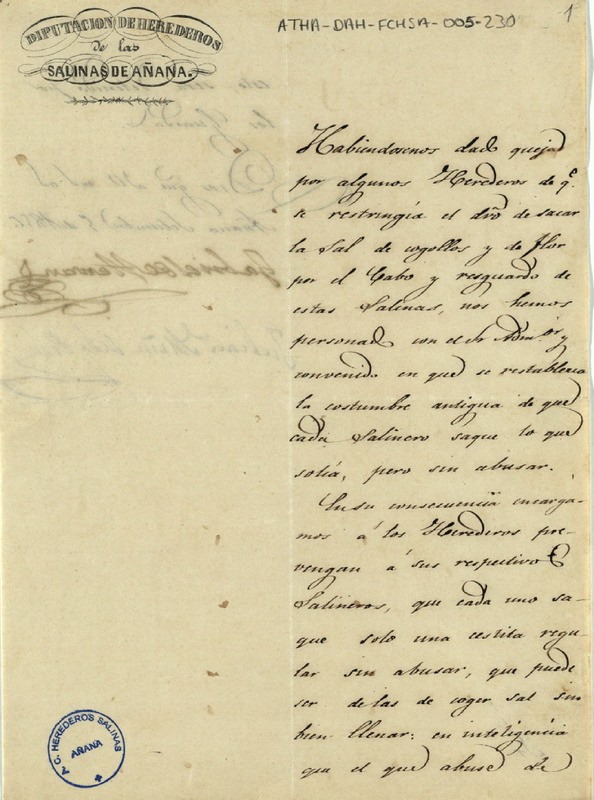 DIPUTACION DE HEREDEROS
de las
SALINAS DE AÑANA.
ATHA-DAH-FCHSA-005-230
1
Habiendosenos dado quejas
por algunos Herederos de q.e
se restringía el dro de sacar
la Sal de cogollos y de flor
por el Cabo y resguardo de
estas Salinas, nos hemos
personado con el Sr Adm.or y
convenido en que se restablezca
la costumbre antigua de que
cada Salinero saque lo que
solía, pero sin abusar.
En su consecuencia encarga-
mos á los Herederos pre-
vengan á sus respectivos
Salineros, que cada uno sa-
que solo una cestita regu-
lar sin abusar, que puede
ser de las de coger sal sin
bien llenar: en inteligencia
que el que abuse de
A. C. HEREDEROS SALINAS
AÑANA